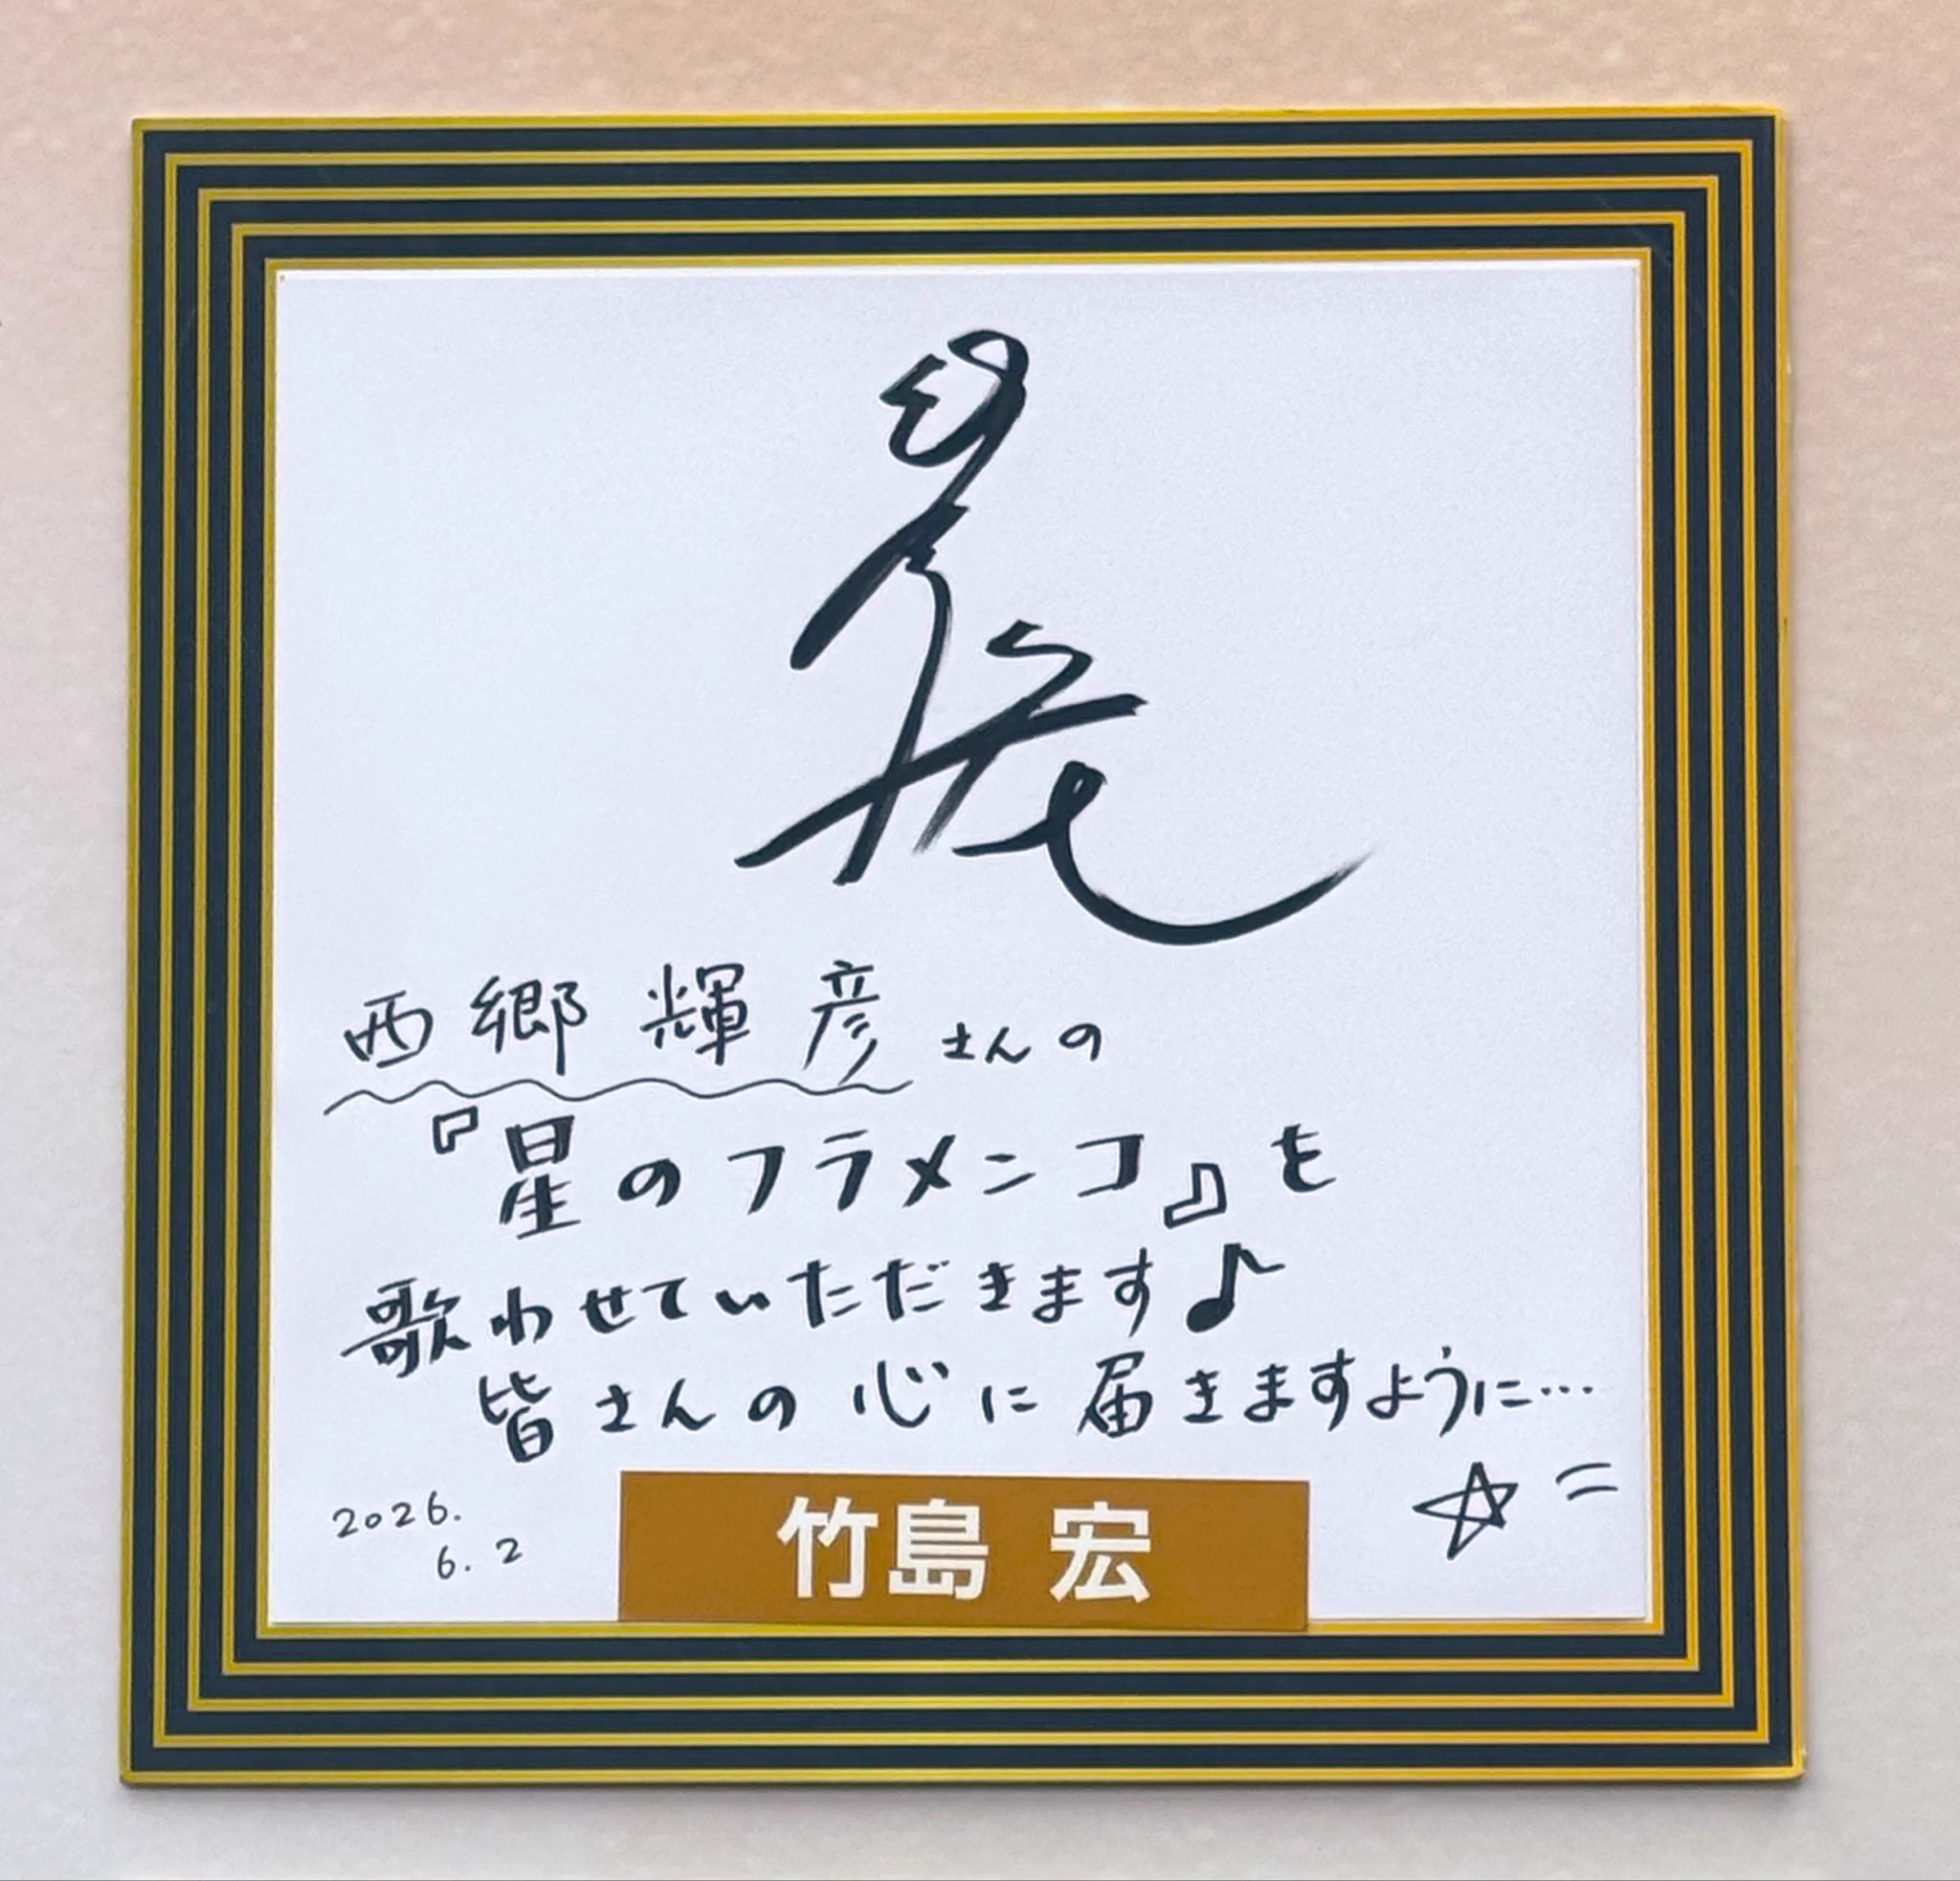 西郷輝彦さんの
『星のフラメンコ』を
歌わせていただきます♪
皆さんの心に届きますように…
☆=
2026.
6.2
竹島 宏